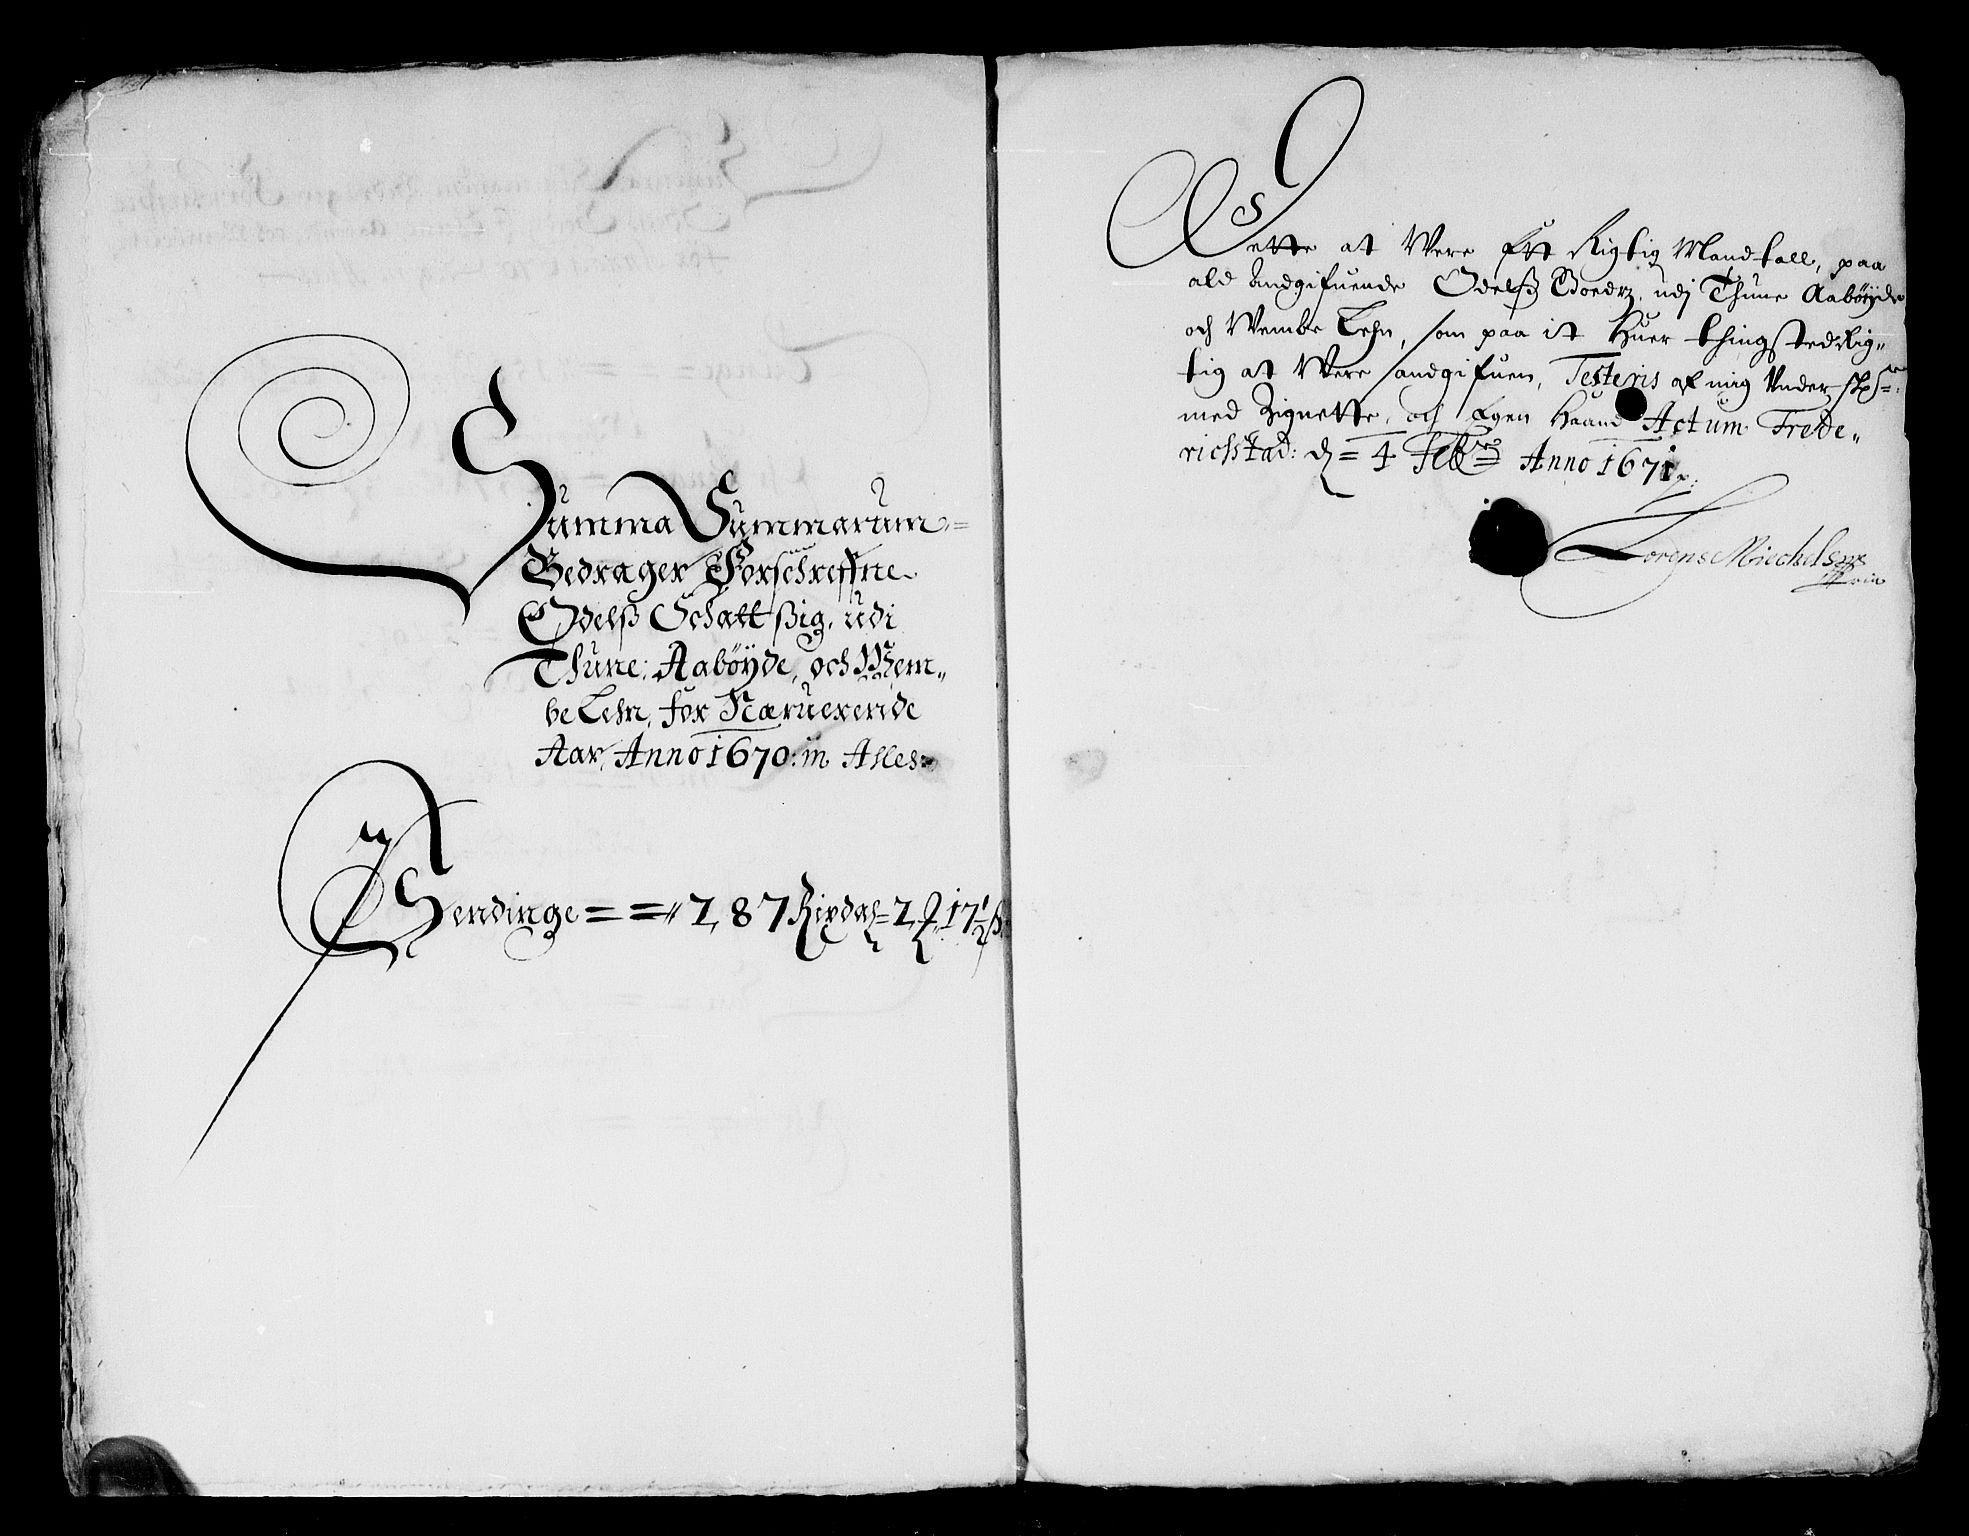 Summa Summarum
Bedrager Forschreffne
Odelß Schatt sig, udi
Thune: Aabøyde, och Wem„
be Lehn, for Nærværende
Aar, Anno 1670: in Alles:
Pendinge == 287 Rixdal= 2 17½ ß
Dette at Were Ett Rigtig Mandtall, paa
ald andgifuende Odelß Goedz, udj Thune Aabøyde
och Wembe Lehn, som paa it huer thingsted Rig„
tig at Were andgifuen, Testeris af mig Under
med Zignette, och Egen Haand Actum Frede„
richstad: d = 4 Feb Anno 1671
Lorens Miechelsen